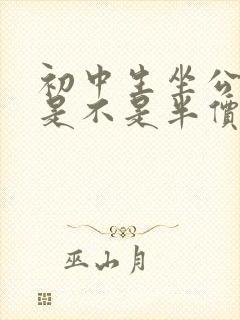 初中生坐公
是不是半價
巫山月